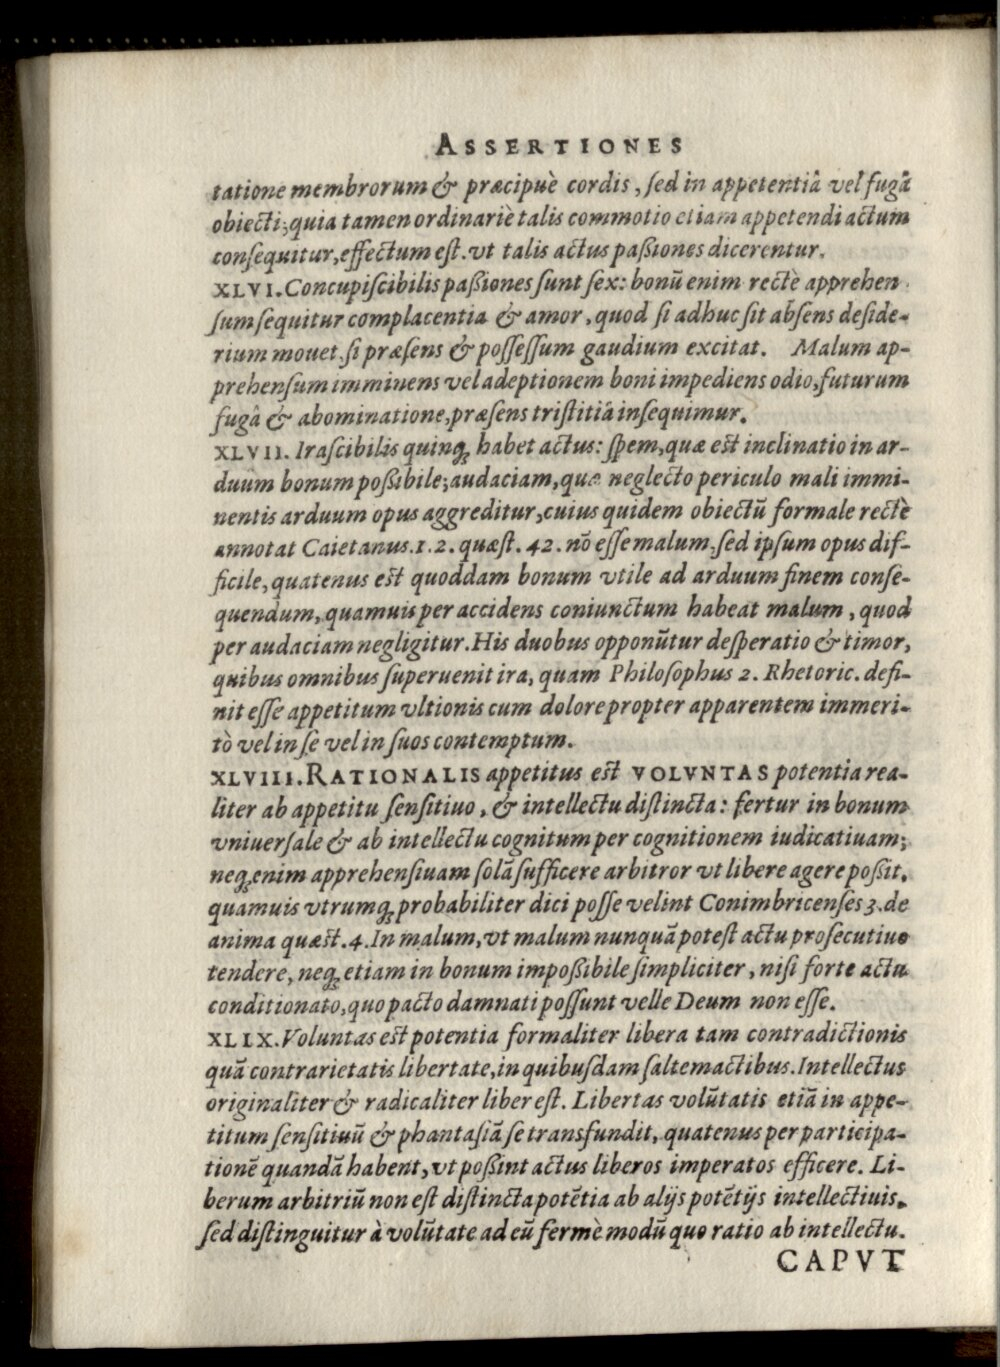 ASSERTIONES
tatione membrorum & præcipuè cordis, sed in appetentiâ vel fugâ
obiecti; quia tamen ordinariè talis commotio etiam appetendi actum
consequitur, effectum est. vt talis actus paßiones dicerentur.
XLVI. Concupiscibilis paßiones sunt sex: bonū enim rectè apprehen
sum sequitur complacentia & amor, quod si adhuc sit absens deside-
rium mouet, si præsens & possessum gaudium excitat. Malum ap-
prehensum imminens vel adeptionem boni impediens odio, futurum
fugâ & abominatione, præsens tristitiâ insequimur.
XLVII. Irascibilis quinq; habet actus: spem, quæ est inclinatio in ar-
duum bonum poßibile; audaciam, quæ neglecto periculo mali immi-
nentis arduum opus aggreditur, cuius quidem obiectū formale rectè
annotat Caietanus. 1. 2. quæst. 42. nō esse malum, sed ipsum opus dif-
ficile, quatenus est quoddam bonum vtile ad arduum finem conse-
quendum, quamuis per accidens coniunctum habeat malum, quod
per audaciam negligitur. His duobus opponūtur desperatio & timor,
quibus omnibus superuenit ira, quam Philosophus 2. Rhetoric. defi-
nit esse appetitum vltionis cum dolore propter apparentem immeri-
tò vel in se vel in suos contemptum.
XLVIII. RATIONALIS appetitus est VOLVNTAS potentia rea-
liter ab appetitu sensitiuo, & intellectu distincta: fertur in bonum
vniuersale & ab intellectu cognitum per cognitionem iudicatiuam;
neq; enim apprehensiuam solā sufficere arbitror vt libere agere poßit,
quamuis vtrumq; probabiliter dici posse velint Conimbricenses 3. de
anima quæst. 4. In malum, vt malum nunquā potest actu prosecutiuo
tendere, neq; etiam in bonum impoßibile simpliciter, nisi forte actu
conditionato, quo pacto damnati possunt velle Deum non esse.
XLIX. Voluntas est potentia formaliter libera tam contradictionis
quā contrarietatis libertate, in quibusdam saltem actibus. Intellectus
originaliter & radicaliter liber est. Libertas volūtatis etiā in appe-
titum sensitiuū & phantasiā se transfundit, quatenus per participa-
tionē quandā habent, vt poßint actus liberos imperatos efficere. Li-
berum arbitriū non est distincta potētia ab alijs potētijs intellectiuis,
sed distinguitur à volūtate ad eū fermè modū quo ratio ab intellectu.
CAPVT